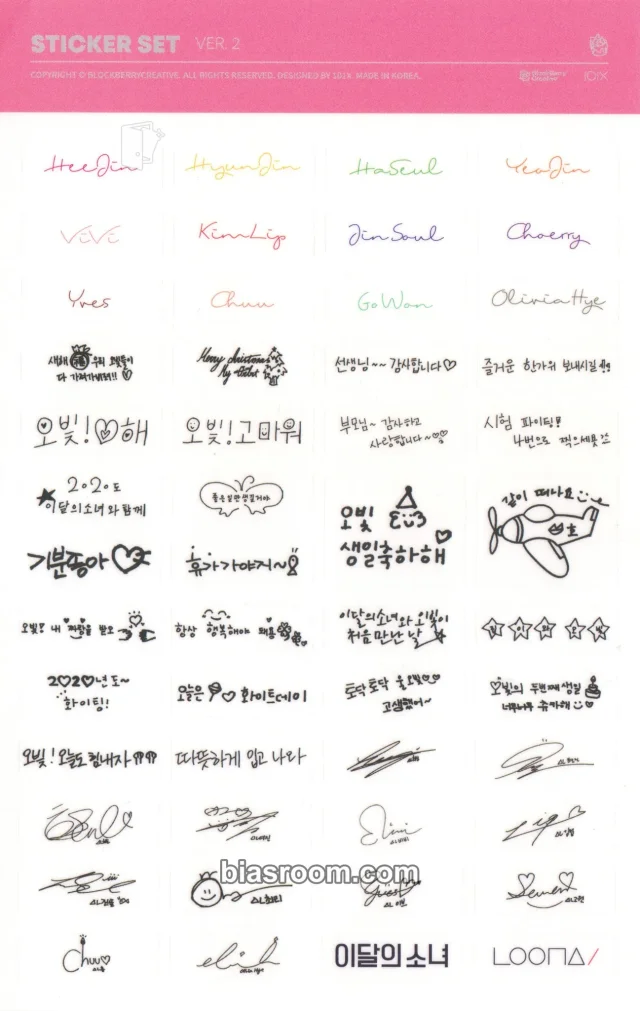 STICKER SET VER. 2
COPYRIGHT © BLOCKBERRYCREATIVE. ALL RIGHTS RESERVED. DESIGNED BY 101X. MADE IN KOREA.
BlockBerry Creative
HeeJin HyunJin HaSeul YeoJin
ViVi Kim Lip JinSoul Choerry
Yves Chuu Go Won Olivia Hye
새해 우리 오빛들이
다 가져가버려!! ♡
Merry christmas
선생님~~ 감사합니다♡
즐거운 한가위 보내시길!!
오빛!♡해
오빛!고마워
부모님~ 감사하고
사랑합니다~♡♡
시험 파이팅!
나번으로 찍으세욧
2020도
이달의 소녀와 함께
좋은 일만 생길거야
오빛
생일축하해
같이 떠나요
기분좋아
휴가가야지~
오빛! 내 받오
항상 행복해야 돼용
이달의 소녀와 오빛이
처음 만난 날
2♡2♡년도~
화이팅!
오늘은 ♡ 화이트데이
토닥토닥 울오빛♡♡
고생했어~
오빛의 두번째 생일
너무너무 츄카해
오빛! 오늘도 힘내자
따뜻하게 입고 나와
biasroom.com
Chuu♡
이달의 소녀
LOOΠΔ/